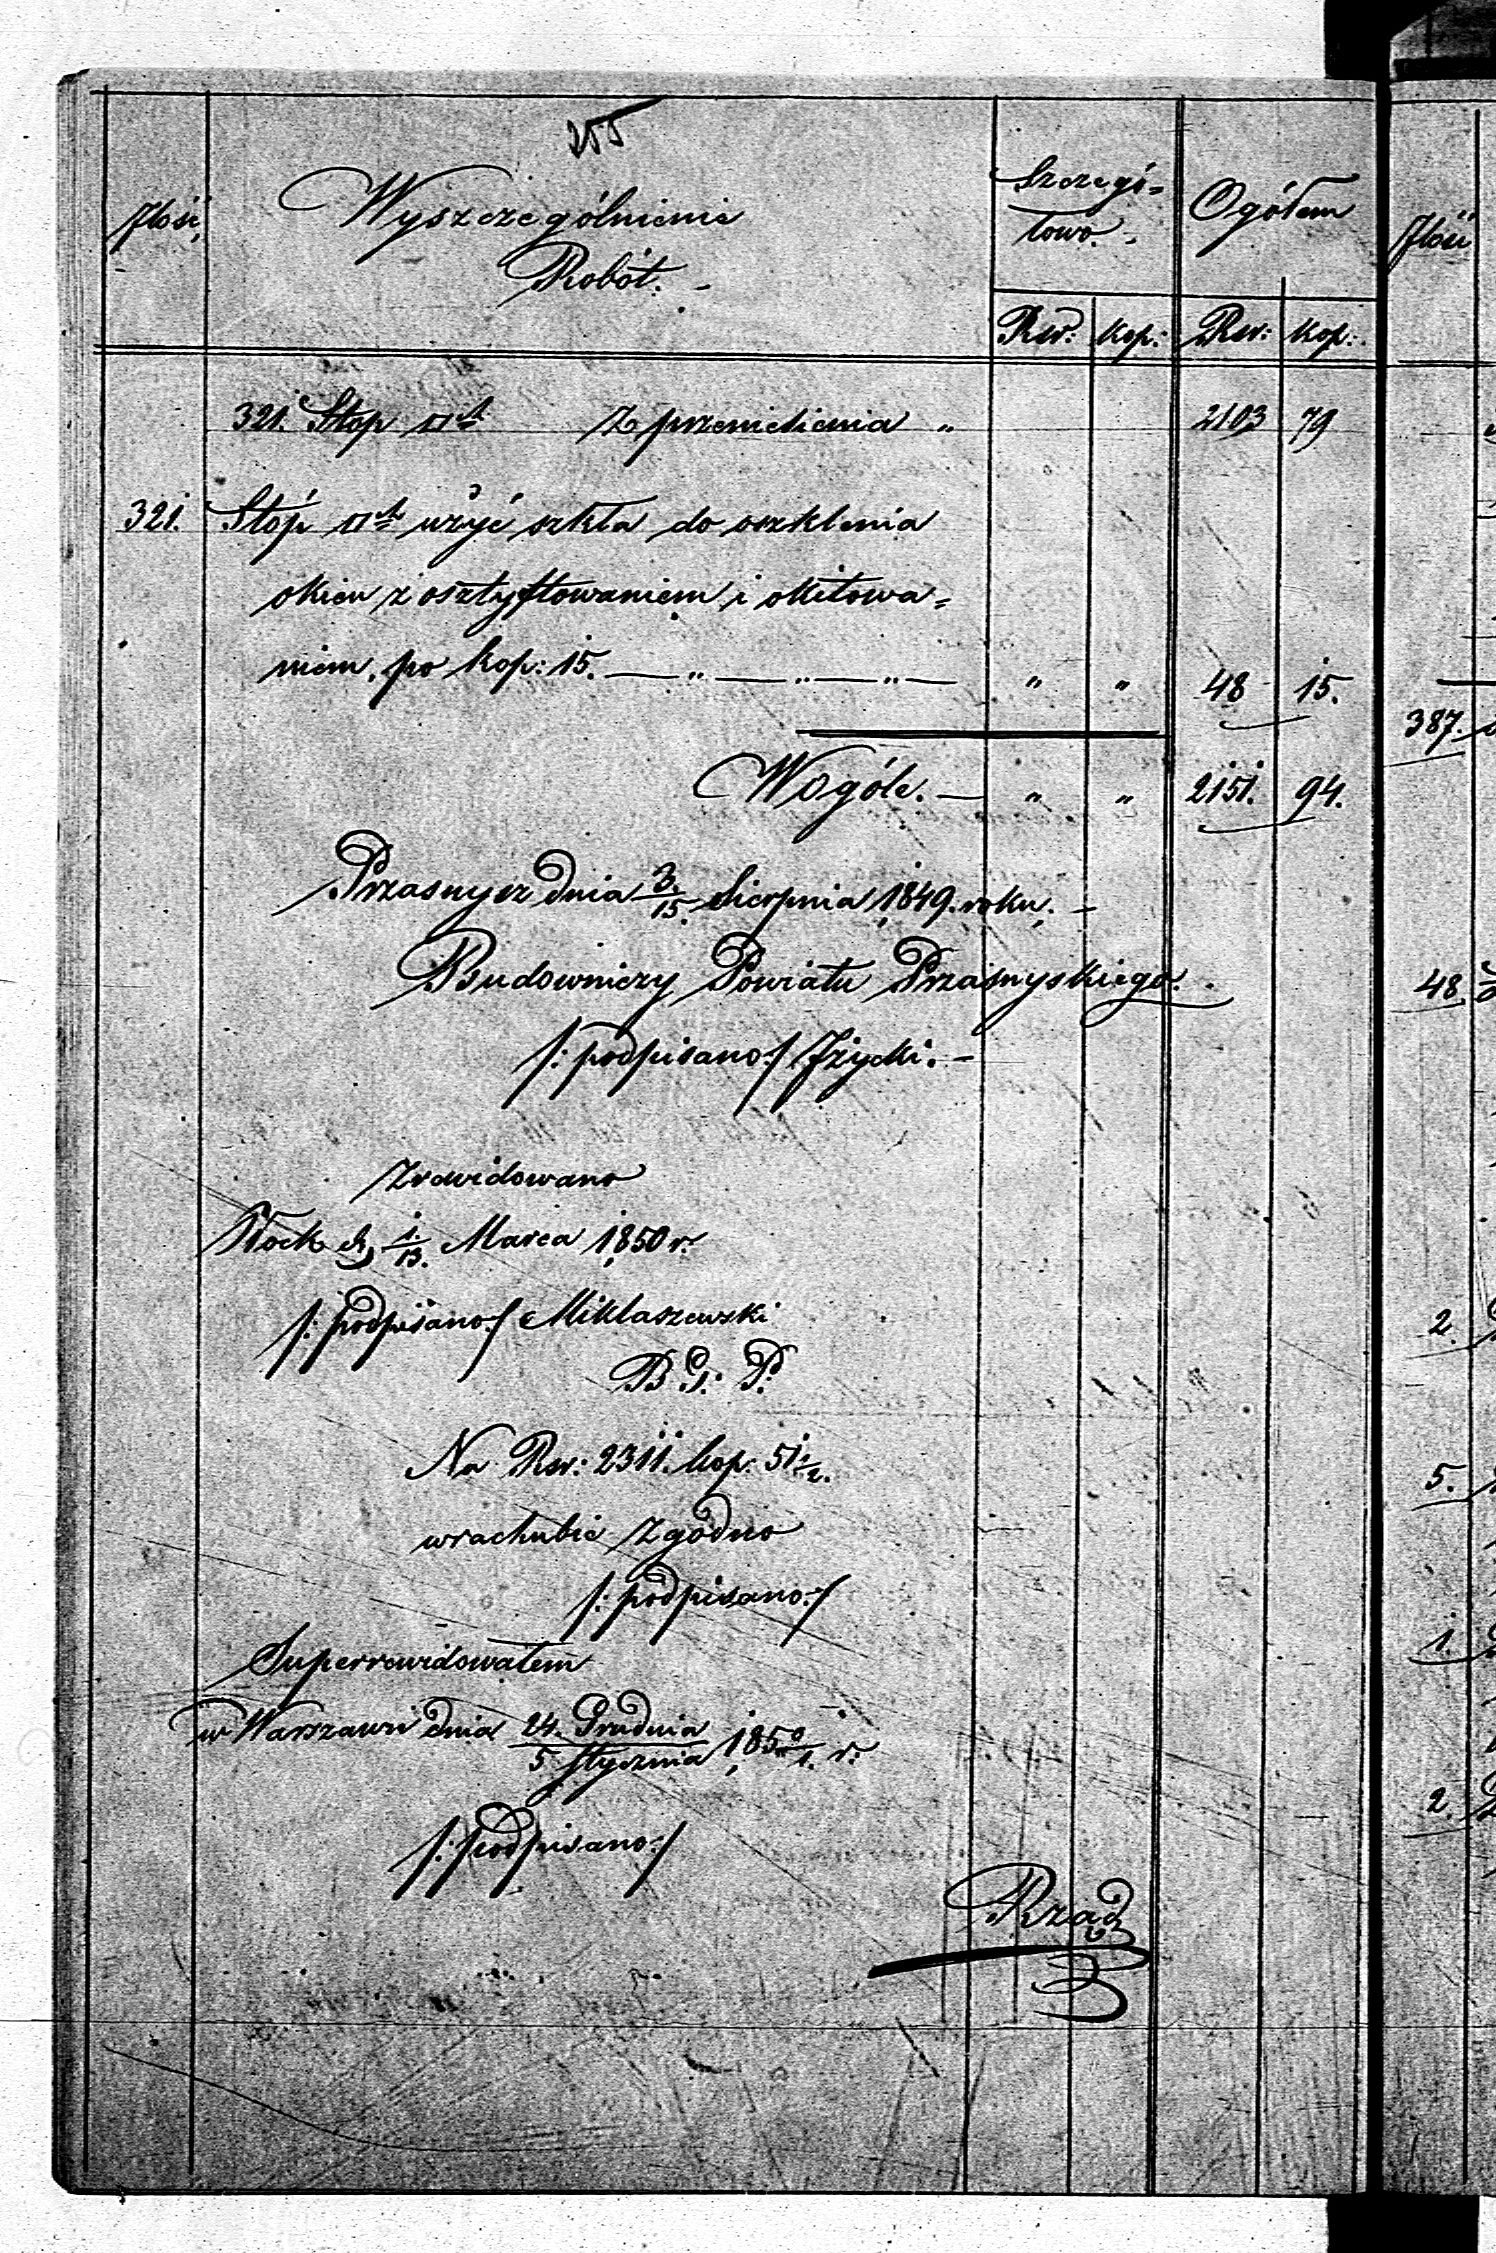 255
Ilość, Wyszczególnienie Robót. –
Szczegó=
łowo. –
Ogółem
Ilość
Rsr: kop: Rsr: kop:
321. Stop □ch Z przeniesienia „ 2103 79
321. Stóp □ch użyć szkła do oszklenia
okien z osztyftowaniem i okitowa=
niem, po kop: 15. — „ — „ — „ — „ „ 48 15.
387.
Wogóle. — „ „ 2151. 94.
Przasnysz dnia 3/15. Sierpnia 1849. roku. –
Budowniczy Powiatu Przasnyskiego.
48
/: podpisano :/ Iżycki. –
Zrewidowano
Płock d, 1/13. Marca 1850 r.
/: podpisano :/ Miklaszewski
2.
B. G: P.
Na Rsr: 2311. kop: 51 1/2.
5.
w rachubie Zgodno
/: podpisano :/
1.
Superrewidowałem
w Warszawie dnia 24. Grudnia/5 Stycznia 1850/1. r.
2.
/: podpisano :/
Rząd